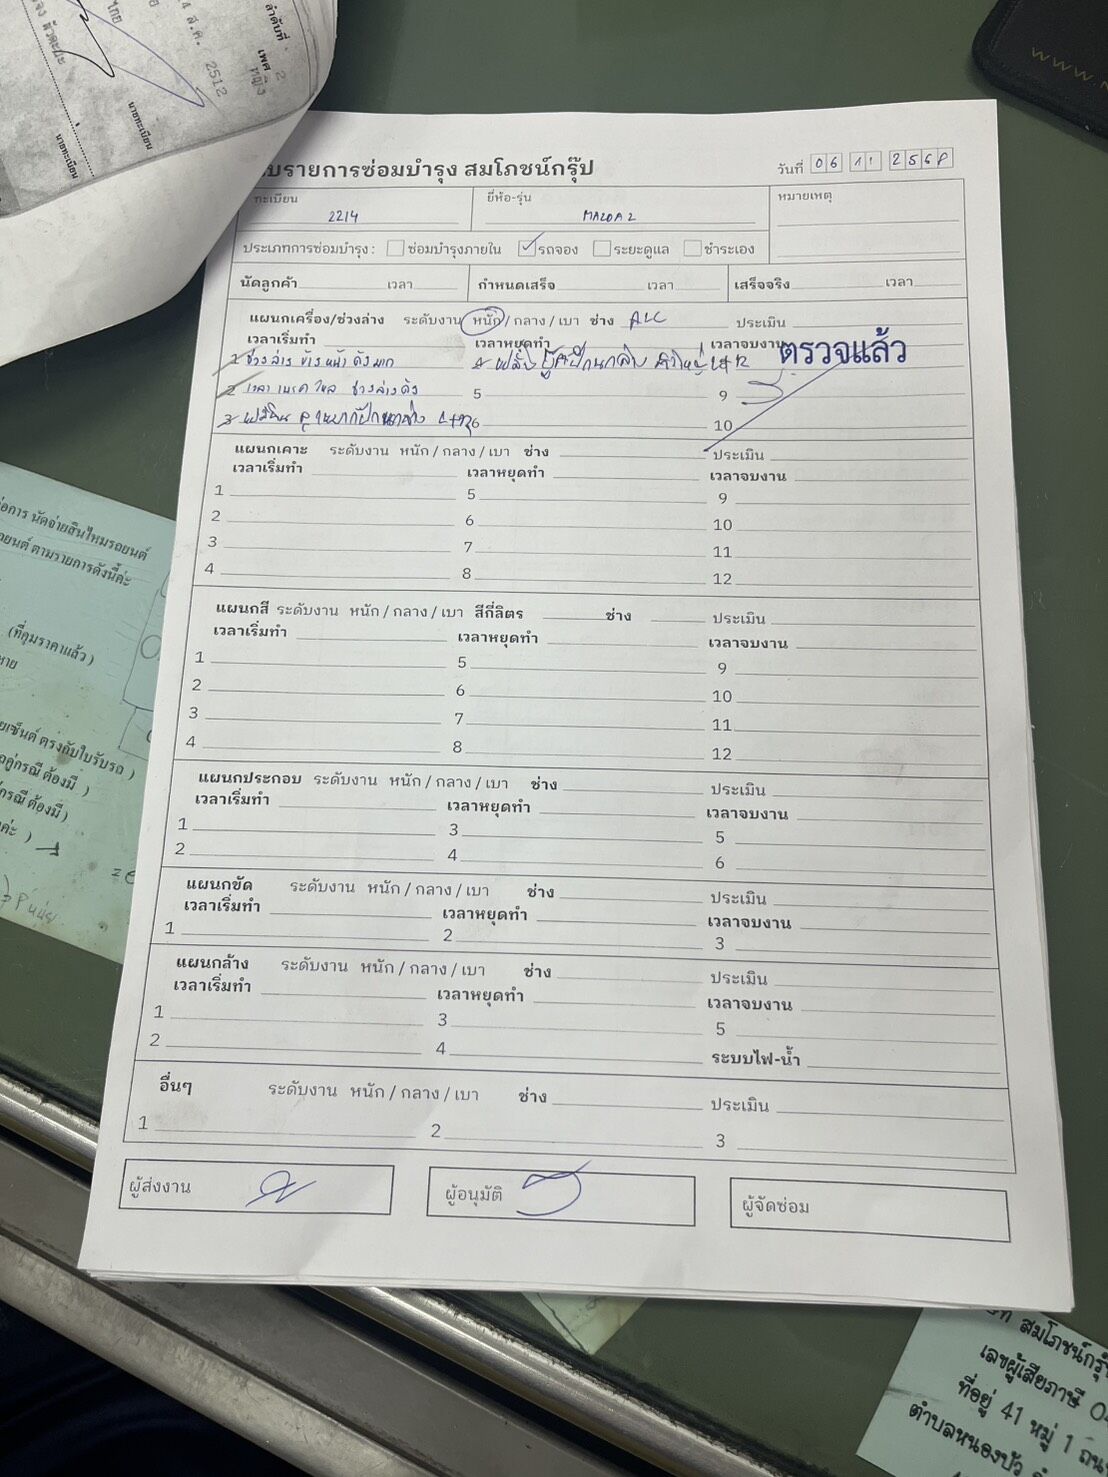 ลำดับที่
เพศ 2
หญิง
ส.ค. 2512
นายทะเบียน
นายทะเบียน
บรายการซ่อมบำรุง สมโภชน์กรุ๊ป
วันที่ 06 11 256
ทะเบียน 2214 ยี่ห้อ-รุ่น MAZDA 2 หมายเหตุ
ประเภทการซ่อมบำรุง : ซ่อมบำรุงภายใน รถจอง ระยะดูแล ชำระเอง
นัดลูกค้า เวลา กำหนดเสร็จ เวลา เสร็จจริง เวลา
แผนกเครื่อง/ช่วงล่าง ระดับงาน หนัก / กลาง / เบา ช่าง ประเมิน
เวลาเริ่มทำ เวลาหยุดทำ เวลาจบงาน
1 ช่วงล่าง ข้างหน้า ดังมาก 4
ตรวจแล้ว
2 เวลา เบรค ไหล ช่วงล่างดัง 5 9
3 6 10
แผนกเคาะ ระดับงาน หนัก / กลาง / เบา ช่าง ประเมิน
เวลาเริ่มทำ เวลาหยุดทำ เวลาจบงาน
1 5 9
2 6 10
3 7 11
4 8 12
แผนกสี ระดับงาน หนัก / กลาง / เบา สีกี่ลิตร ช่าง ประเมิน
เวลาเริ่มทำ เวลาหยุดทำ เวลาจบงาน
1 5 9
2 6 10
3 7 11
4 8 12
แผนกประกอบ ระดับงาน หนัก / กลาง / เบา ช่าง ประเมิน
เวลาเริ่มทำ เวลาหยุดทำ เวลาจบงาน
1 3 5
2 4 6
แผนกขัด ระดับงาน หนัก / กลาง / เบา ช่าง ประเมิน
เวลาเริ่มทำ เวลาหยุดทำ เวลาจบงาน
1 2 3
แผนกล้าง ระดับงาน หนัก / กลาง / เบา ช่าง ประเมิน
เวลาเริ่มทำ เวลาหยุดทำ เวลาจบงาน
1 3 5
2 4 ระบบไฟ-น้ำ
อื่นๆ ระดับงาน หนัก / กลาง / เบา ช่าง ประเมิน
1 2 3
ผู้ส่งงาน ผู้อนุมัติ ผู้จัดซ่อม
่อการ นัดจ่ายสินไหมรถยนต์
ยนต์ ตามรายการดังนี้ค่ะ
(ที่คุมราคาแล้ว)
ยเซ็นต์ ตรงกับใบรับรถ )
คู่กรณี ต้องมี )
กรณี ต้องมี)
สมโภชน์กรุ๊
เลขผู้เสียภาษี 0
ที่อยู่ 41 หมู่ 1 ถน
ตำบลหนองบัว